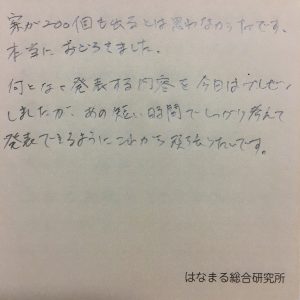 案が200個も出るとは思わなかったです。
本当におどろきました。
何となく発表する内容を今日はプレゼン
しましたが、あの短い時間でしっかり考えて
発表できるようにこれから頑張りたいです。
はなまる総合研究所